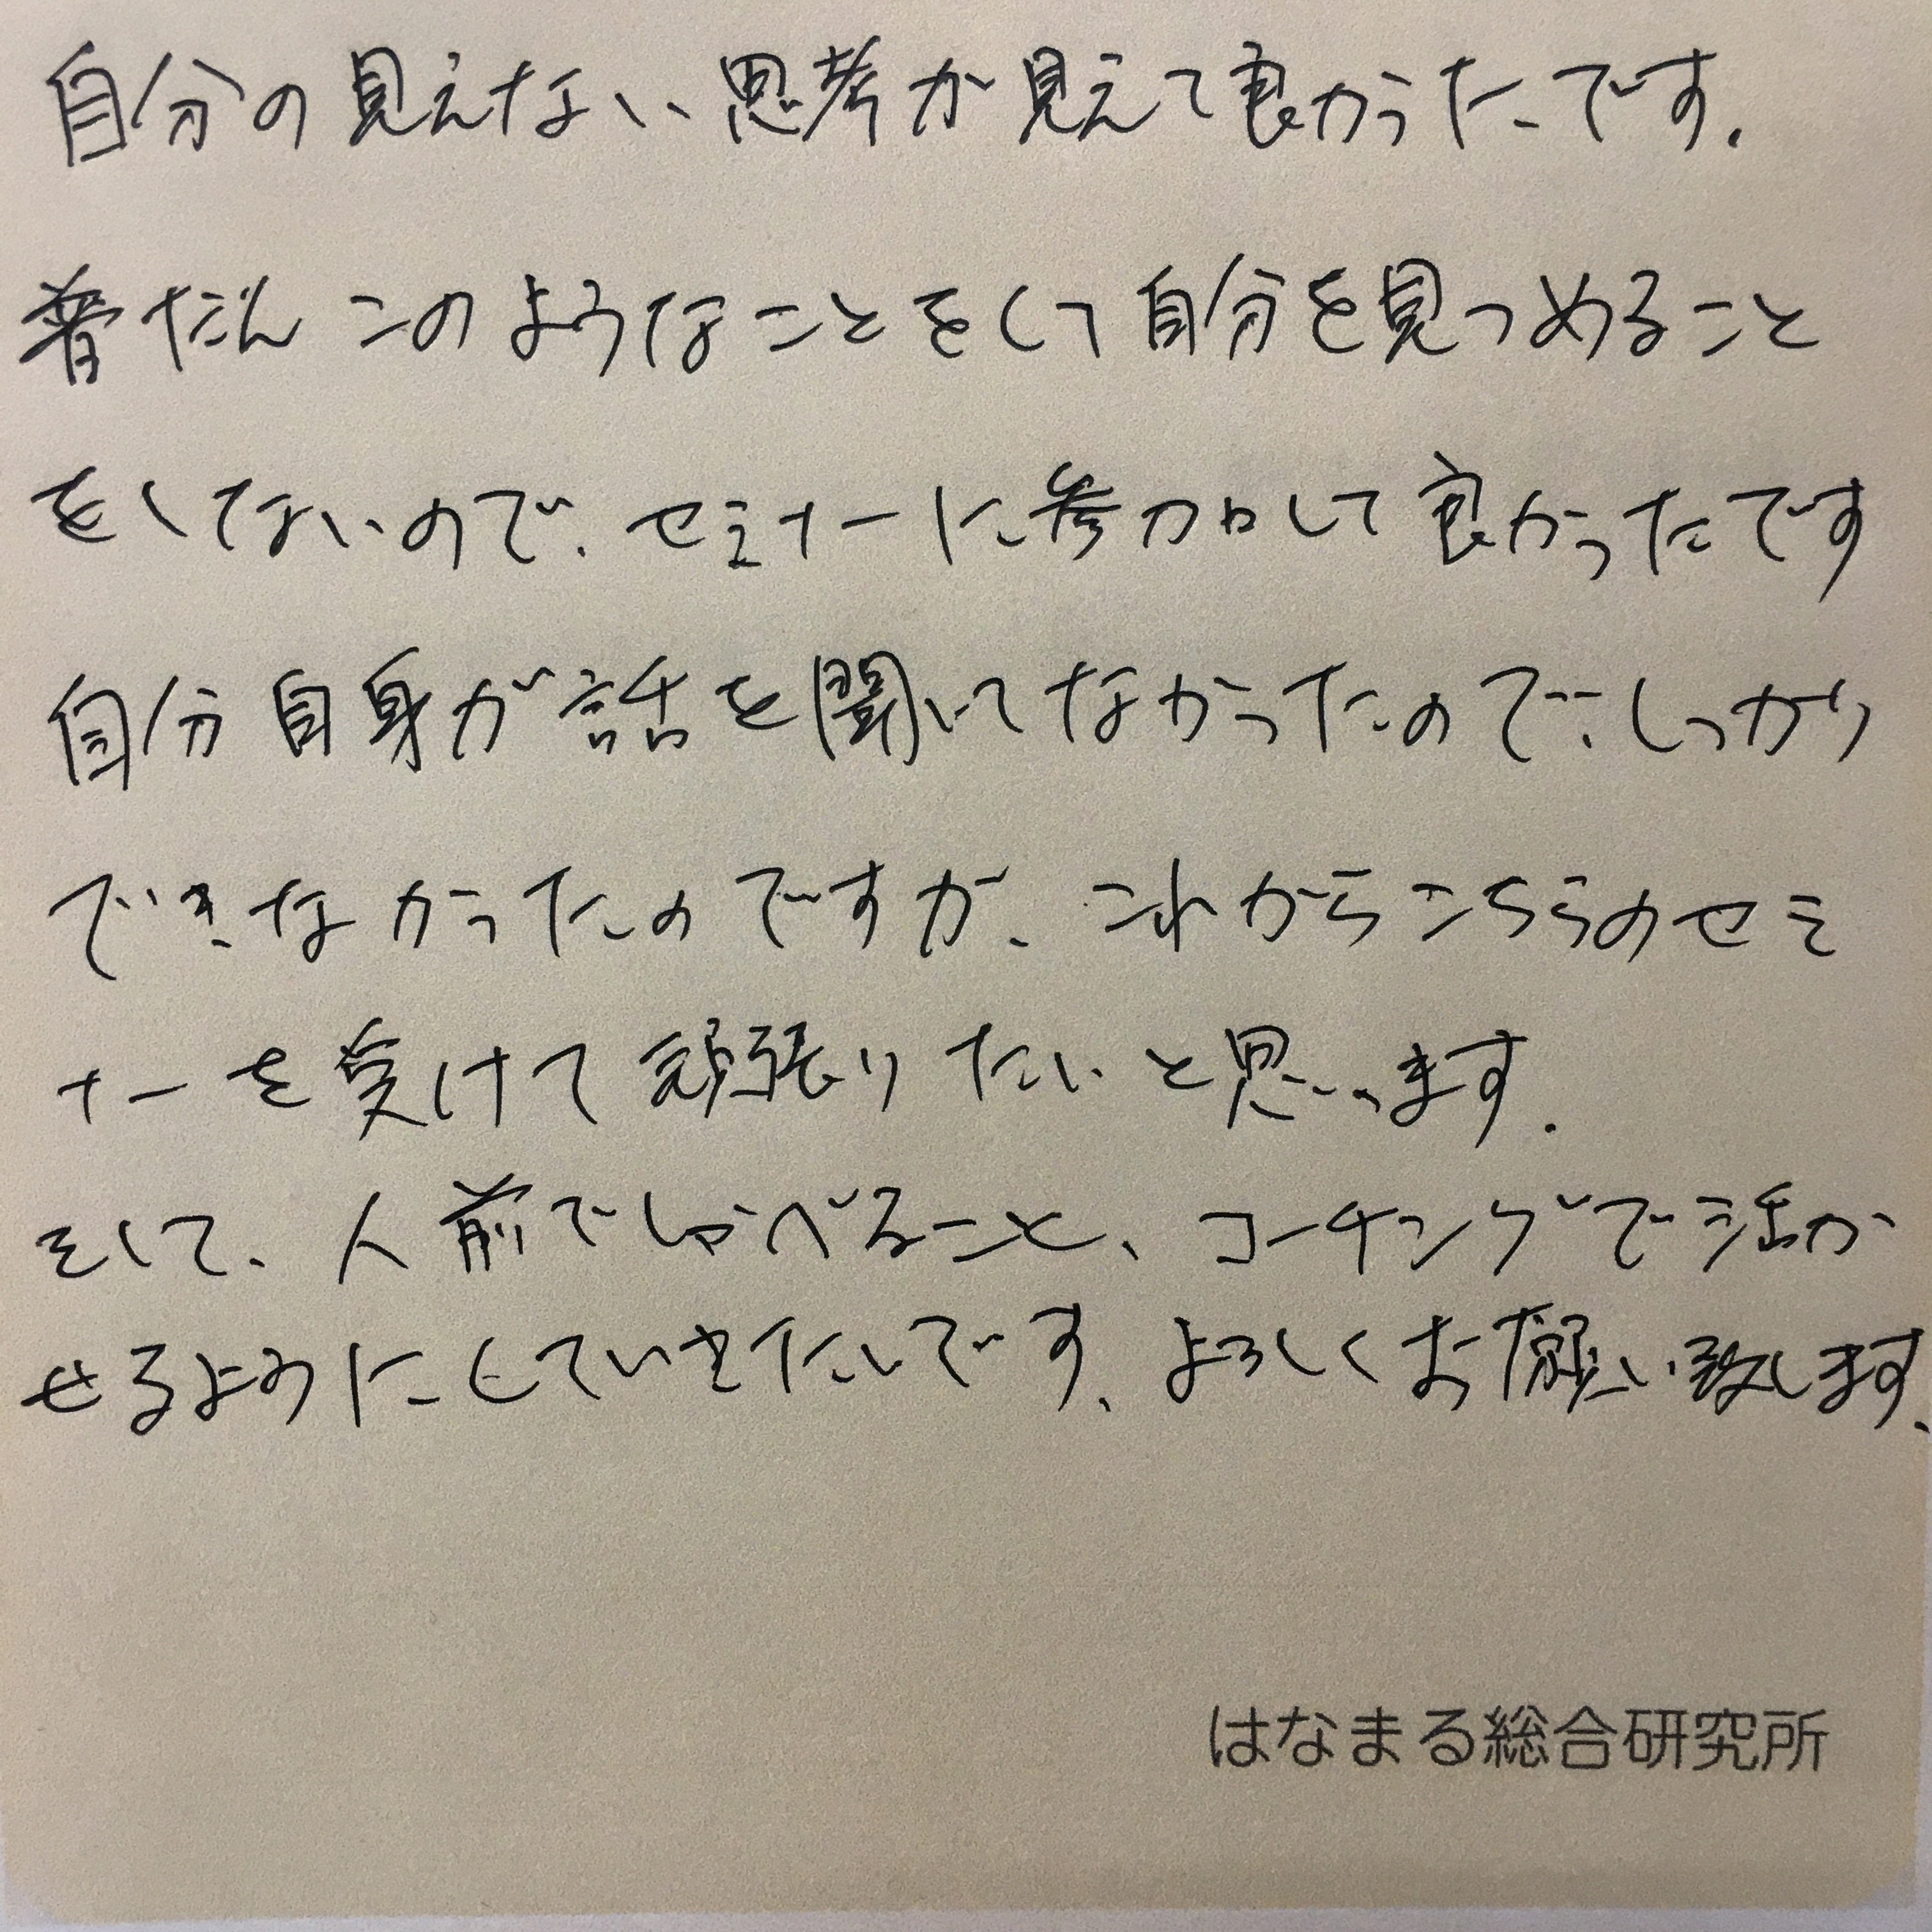 自分の見えない思考が見えて良かったです.
普だんこのようなことをして自分を見つめること
をしてないので、セミナーに参加して良かったです
自分自身が話を聞いてなかったので、しっかり
できなかったのですが、これからこちらのセミ
ナーを受けて頑張りたいと思います.
そして、人前でしゃべること、コーチングで活か
せるようにしていきたいです、よろしくお願い致します、
はなまる総合研究所